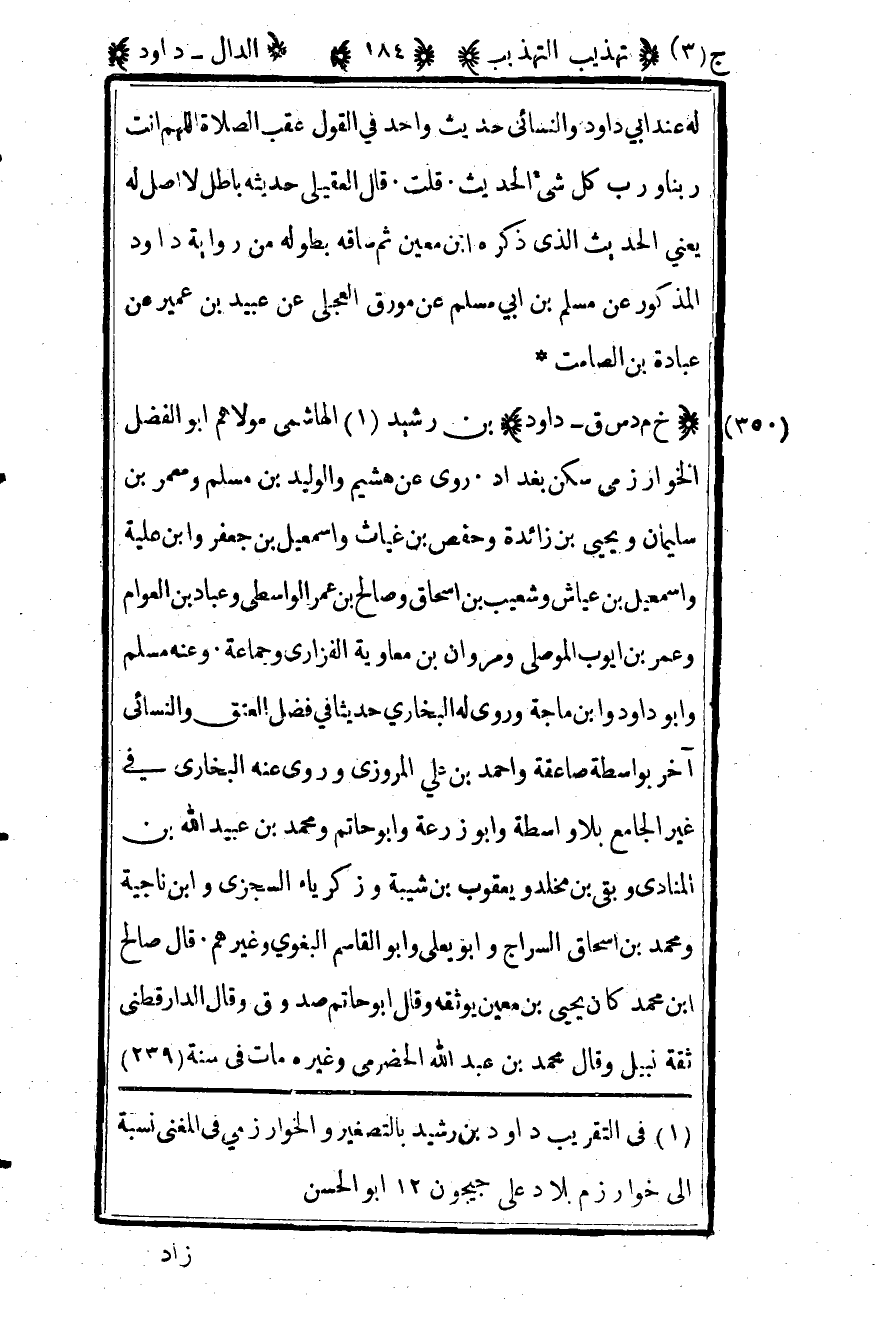 ج(٣) ﴿ تهذيب التهذيب ﴾ ﴿ ١٨٤ ﴾ ﴿ الدال ـ داود ﴾
له عند ابي داود والنسائى حديث واحد في القول عقب الصلاة اللهم انت
ربنا ورب كل شئ الحديث · قلت · قال العقيلى حديثه باطل لا اصل له
يعني الحديث الذى ذكره ابن معين ثم ساقه بطوله من رواية داود
المذكور عن مسلم بن ابي مسلم عن مورق العجلى عن عبيد بن عمير عن
عبادة بن الصامت *
(٣٥٠) ﴿ خ م د س ق ـ داود ﴾ بن رشيد (١) الهاشمى مولاهم ابو الفضل
الخوارزمى سكن بغداد · روى عن هشيم والوليد بن مسلم ومعمر بن
سليمان ويحيى بن زائدة وحفص بن غياث واسمعيل بن جعفر وابن علية
واسمعيل بن عياش وشعيب بن اسحاق وصالح بن عمر الواسطى وعباد بن العوام
وعمر بن ايوب الموصلى ومروان بن معاوية الفزارى وجماعة · وعنه مسلم
وابو داود وابن ماجة وروى له البخاري حديثا في فضل العتق والنسائى
آخر بواسطة صاعقة واحمد بن علي المروزى وروى عنه البخارى في
غير الجامع بلا واسطة وابو زرعة وابو حاتم ومحمد بن عبيد الله بن
المنادى وبقى بن مخلد ويعقوب بن شيبة وزكرياء السجزى وابن ناجية
ومحمد بن اسحاق السراج وابو يعلى وابو القاسم البغوي وغيرهم · قال صالح
ابن محمد كان يحيى بن معين يوثقه وقال ابو حاتم صدوق وقال الدارقطنى
ثقة نبيل وقال محمد بن عبد الله الحضرمى وغيره مات فى سنة (٢٣٩)
(١) فى التقريب داود بن رشيد بالتصغير والخوارزمي فى المغنى نسبة
الى خوارزم بلاد على جيحون ١٢ ابو الحسن
زاد